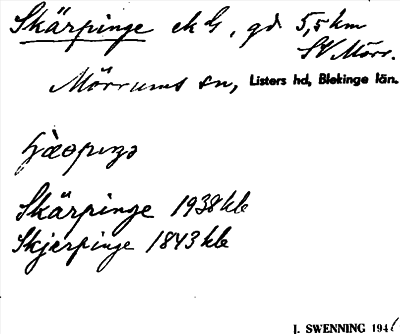 Skärpinge ek bl, gd 5,5 km
SV Mörr.
Mörrums sn, Listers hd, Blekinge län.
Skärpinge 1938 kb
Skjerpinge 1843 kb
J. SWENNING 194